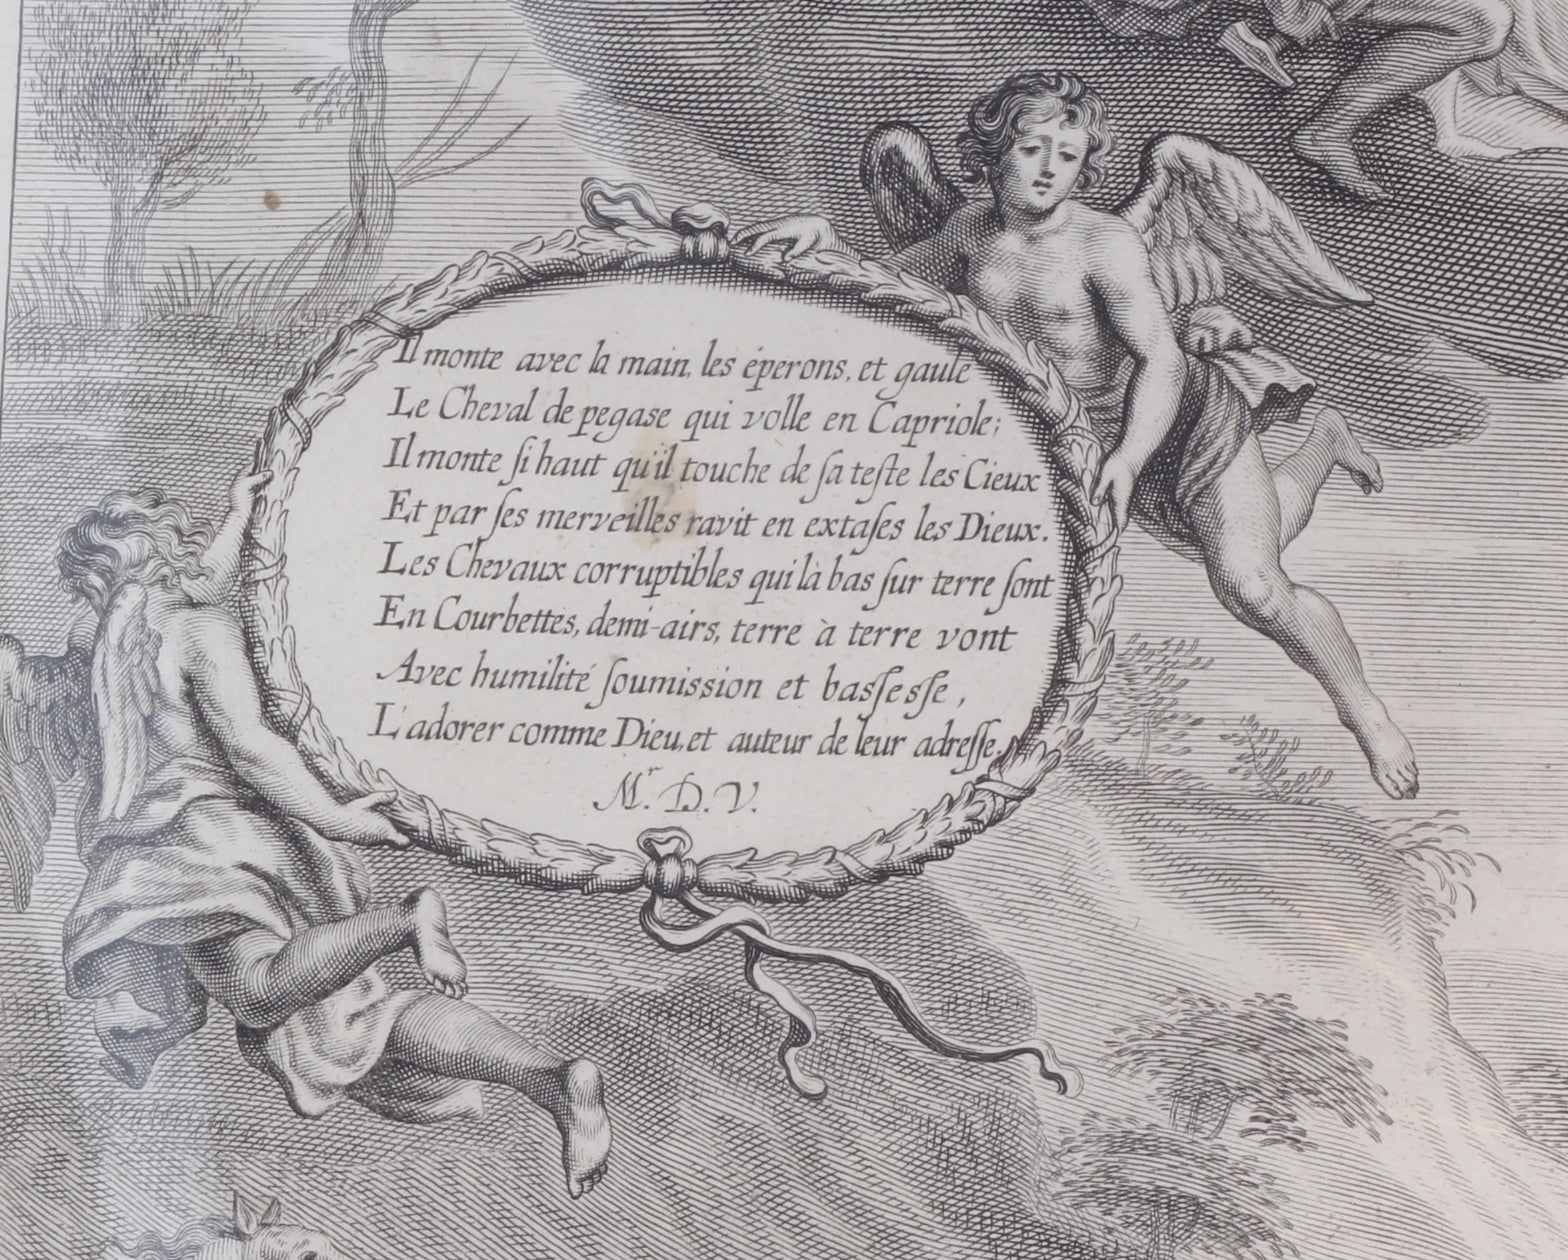 Il monte avec la main, les éperons, et gaule
Le Cheval de pegase qui volle en Capriole;
Il monte ſi haut qu'il touche de ſa teſte les Cieux
Et par ſes merveilles ravit en extaſes les Dieux.
Les Chevaux corruptibles qui là bas ſur terre ſont
En Courbettes, demi-airs, terre à terre vont
Avec humilité ſoumission et basſesſe,
L'adorer comme Dieu, et auteur de leur adreſſe.
Mr. D. V.